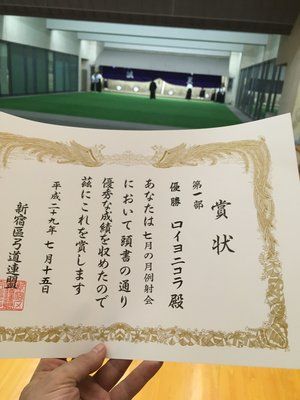 賞状
第一部
優勝 ロイヨニコラ 殿
あなたは七月の月例射会
において頭書の通り
優秀な成績を収めたので
茲にこれを賞します
平成二十九年 七月十五日
新宿區弓道連盟